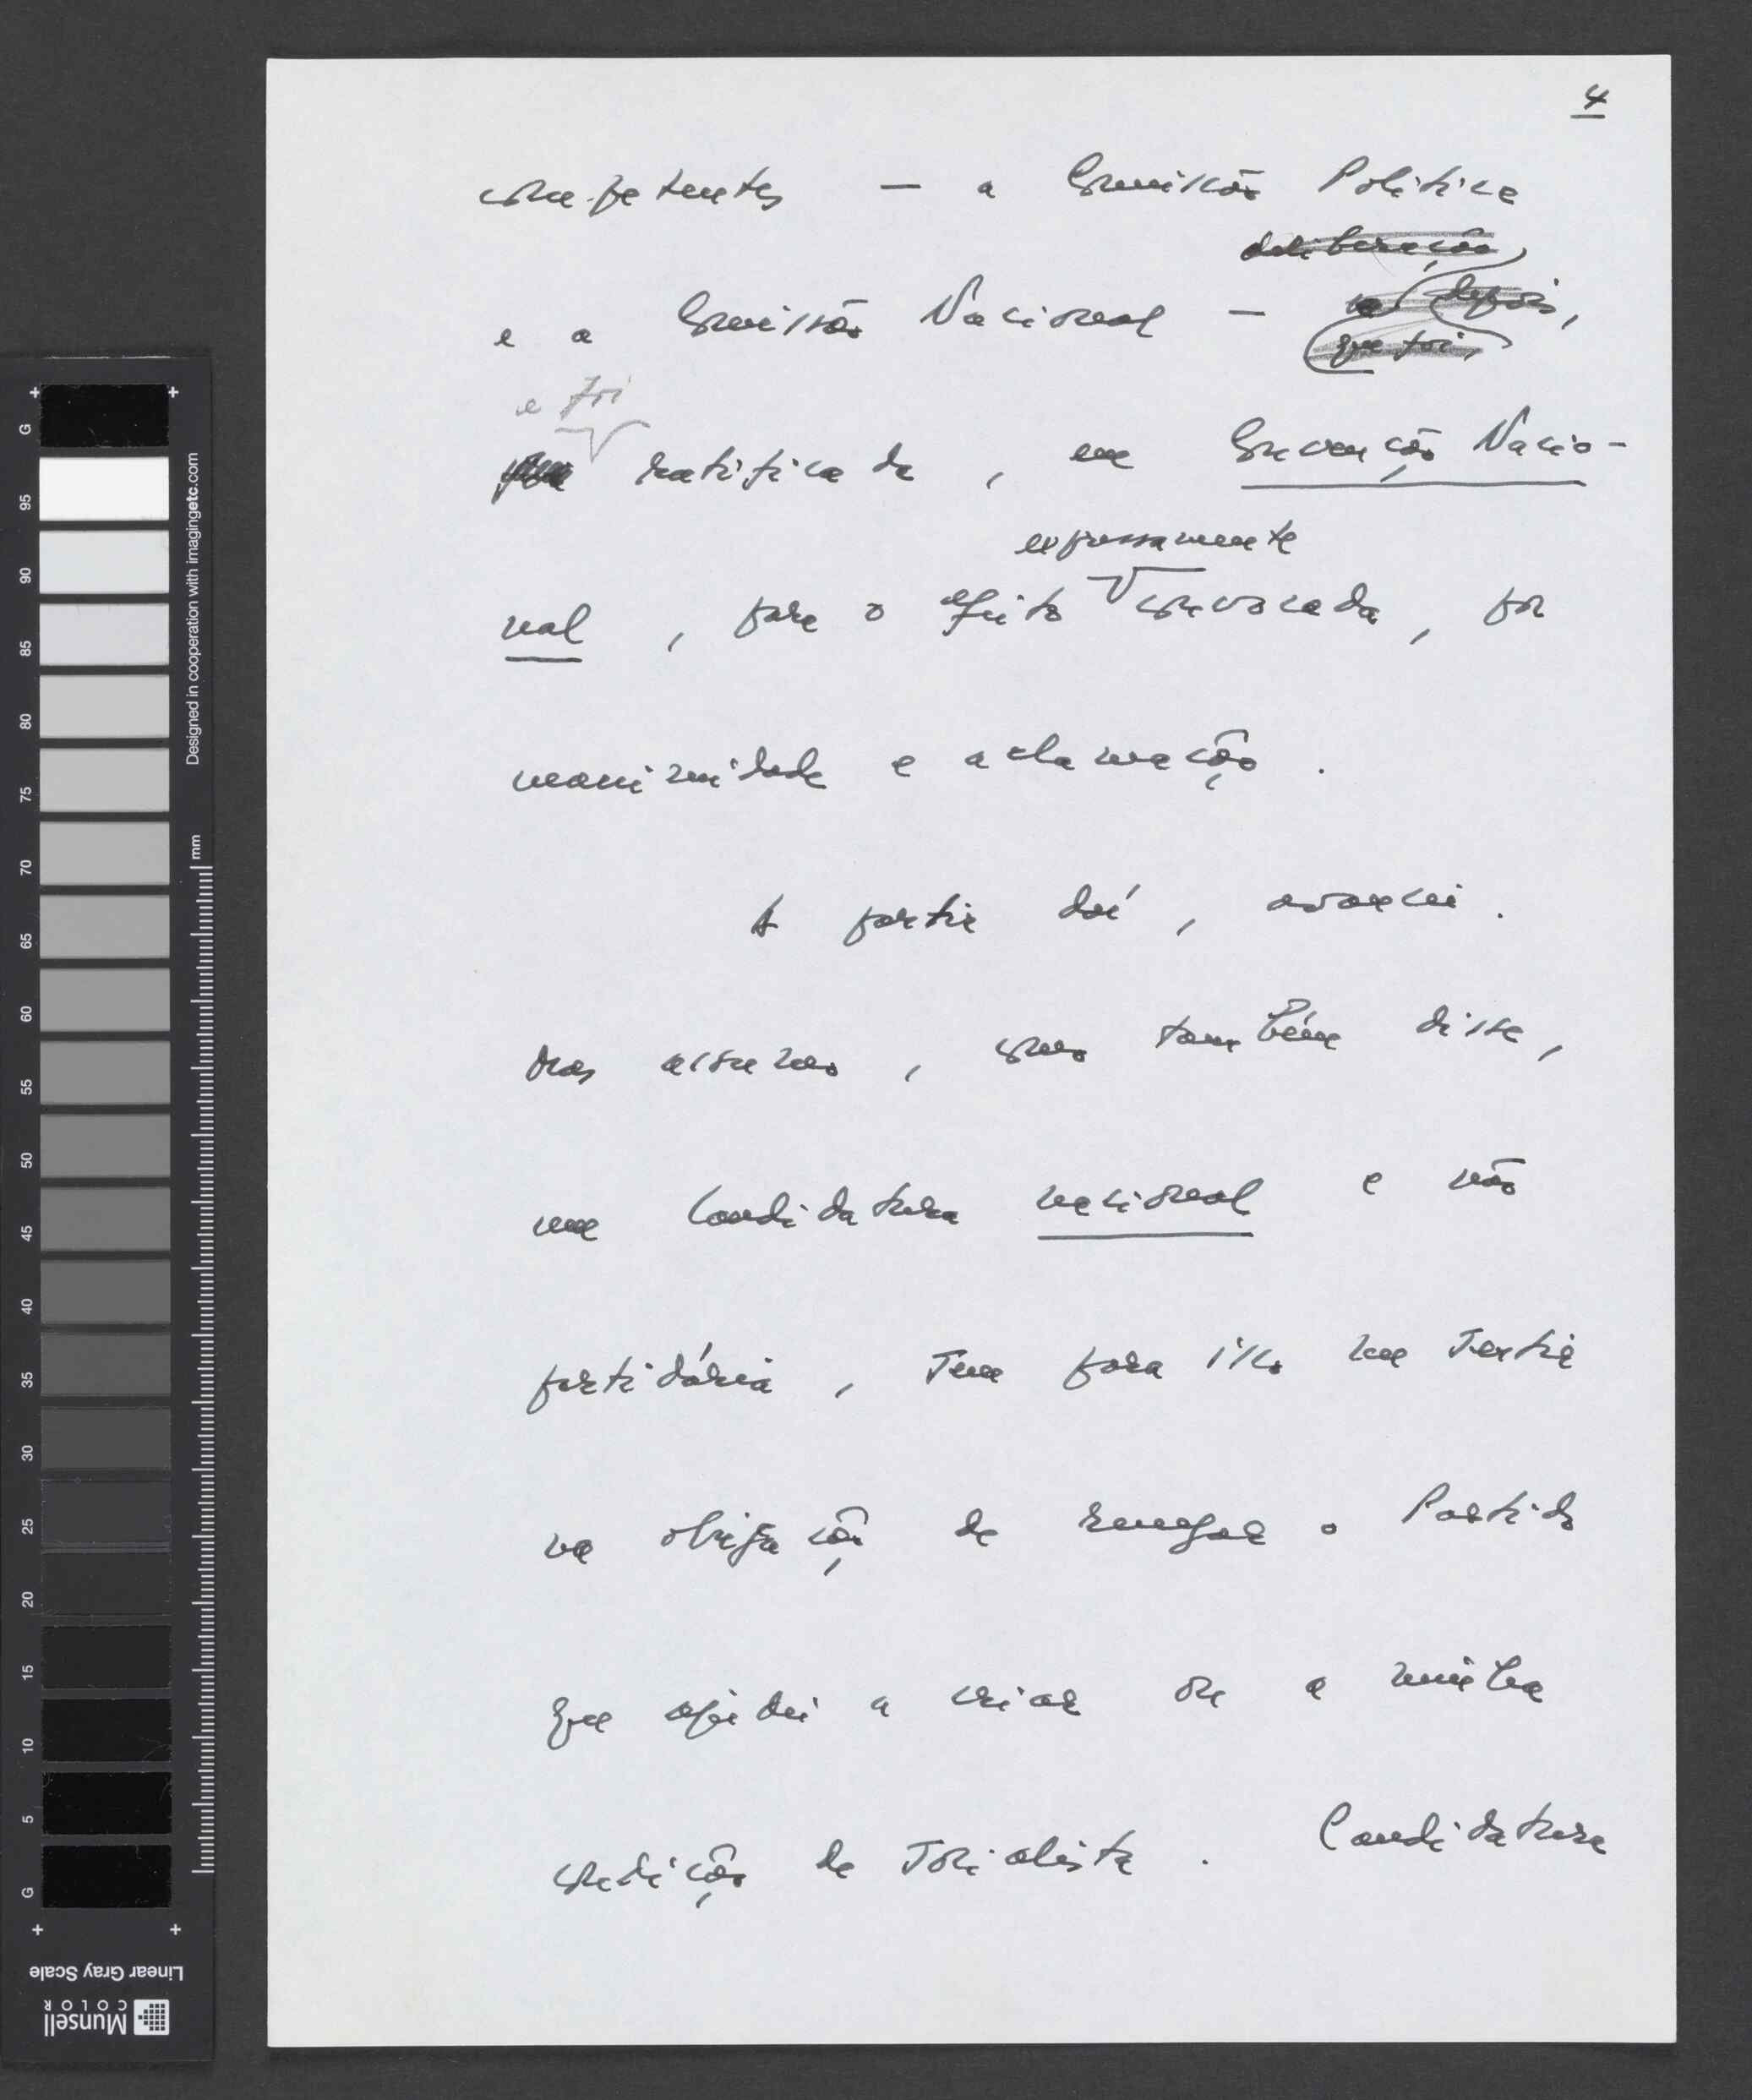 4
competentes — a Comissão Política
deliberação
e a Comissão Nacional — depois,
que foi,
e foi
ratificada, em Convenção Nacio-
expressamente
nal, para o efeito convocada, por
unanimidade e aclamação.
A partir daí, avancei.
Mas assumo, como também disse,
uma Candidatura nacional e não
partidária, sem para isso me sentir
na obrigação de renegar o Partido
que ajudei a criar ou a minha
condição de Socialista. Candidatura
G
95
90
85
80
75
70
65
60
55
50
45
40
35
30
25
20
15
10
5
G
mm
Designed in cooperation with imagingetc.com
Linear Gray Scale
Munsell
COLOR